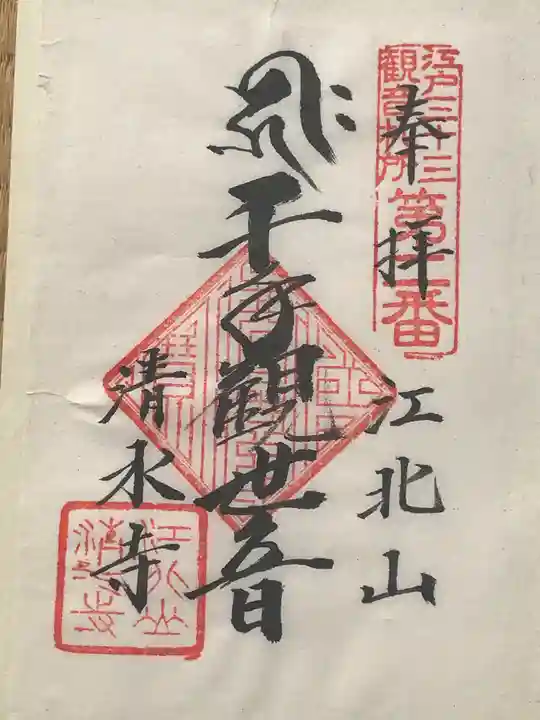 江戸三十三
観音札所
第二番
奉拝
江北山
千手観世音
清水寺
江北山
清水寺